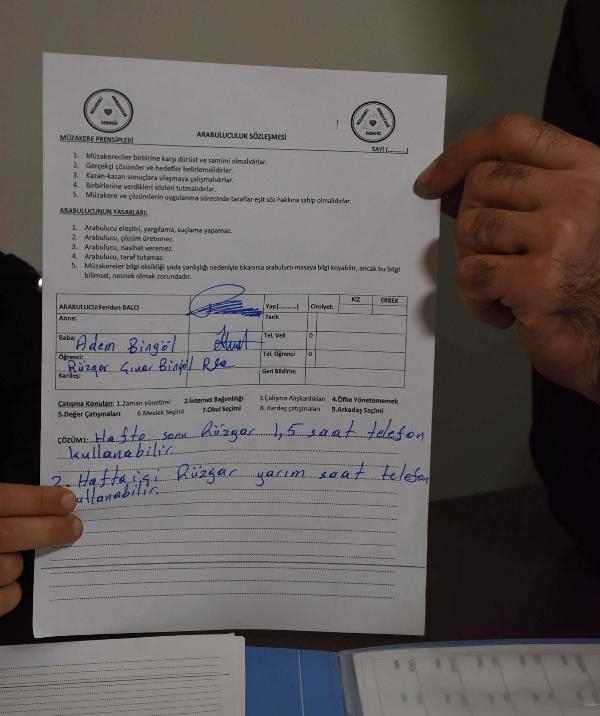 MÜZAKERECİ ARABULUCULAR DERNEĞİ
MÜZAKERECİ ARABULUCULAR DERNEĞİ
MÜZAKERE PRENSİPLERİ
ARABULUCULUK SÖZLEŞMESİ
SAYI (..........)
1. Müzakereciler birbirine karşı dürüst ve samimi olmalıdırlar.
2. Gerçekçi çözümler ve hedefler belirlemelidirler.
3. Kazan-kazan sonuçlara ulaşmaya çalışmalıdırlar.
4. Birbirlerine verdikleri sözleri tutmalıdırlar.
5. Müzakere ve çözümlerin uygulanma sürecinde taraflar eşit söz hakkına sahip olmalıdırlar.
ARABULUCUNUN YASAKLARI:
1. Arabulucu eleştiri, yargılama, suçlama yapamaz.
2. Arabulucu, çözüm üretemez.
3. Arabulucu, nasihat veremez.
4. Arabulucu, taraf tutamaz.
5. Müzakereler bilgi eksikliği yada yanlışlığı nedeniyle tıkanırsa arabulucu masaya bilgi koyabilir, ancak bu bilgi
bilimsel, nesnek olmak zorundadır.
ARABULUCU:Feridun BALCI Yaş(..........) Cinsiyet: KIZ ERKEK
Anne: Tarih
Baba: Adem Bingöl Tel. Veli 0
Öğrenci: Rüzgar Çınar Bingöl Tel. Öğrenci 0
Kardeş: Geri Bildirim
Çatışma Konuları: 1.Zaman yönetimi 2.İnternet Bağımlığı 3.Çalışma Alışkanlıkları 4.Öfke Yönetememek
5.Değer Çatışmaları 6.Meslek Seçimi 7.Okul Seçimi 8. Kardeş çatışmaları 9.Arkadaş Seçimi
ÇÖZÜM1: Hafta sonu Rüzgar 1,5 saat telefon
kullanabilir.
2. Hafta içi Rüzgar yarım saat telefon
ullanabilir.